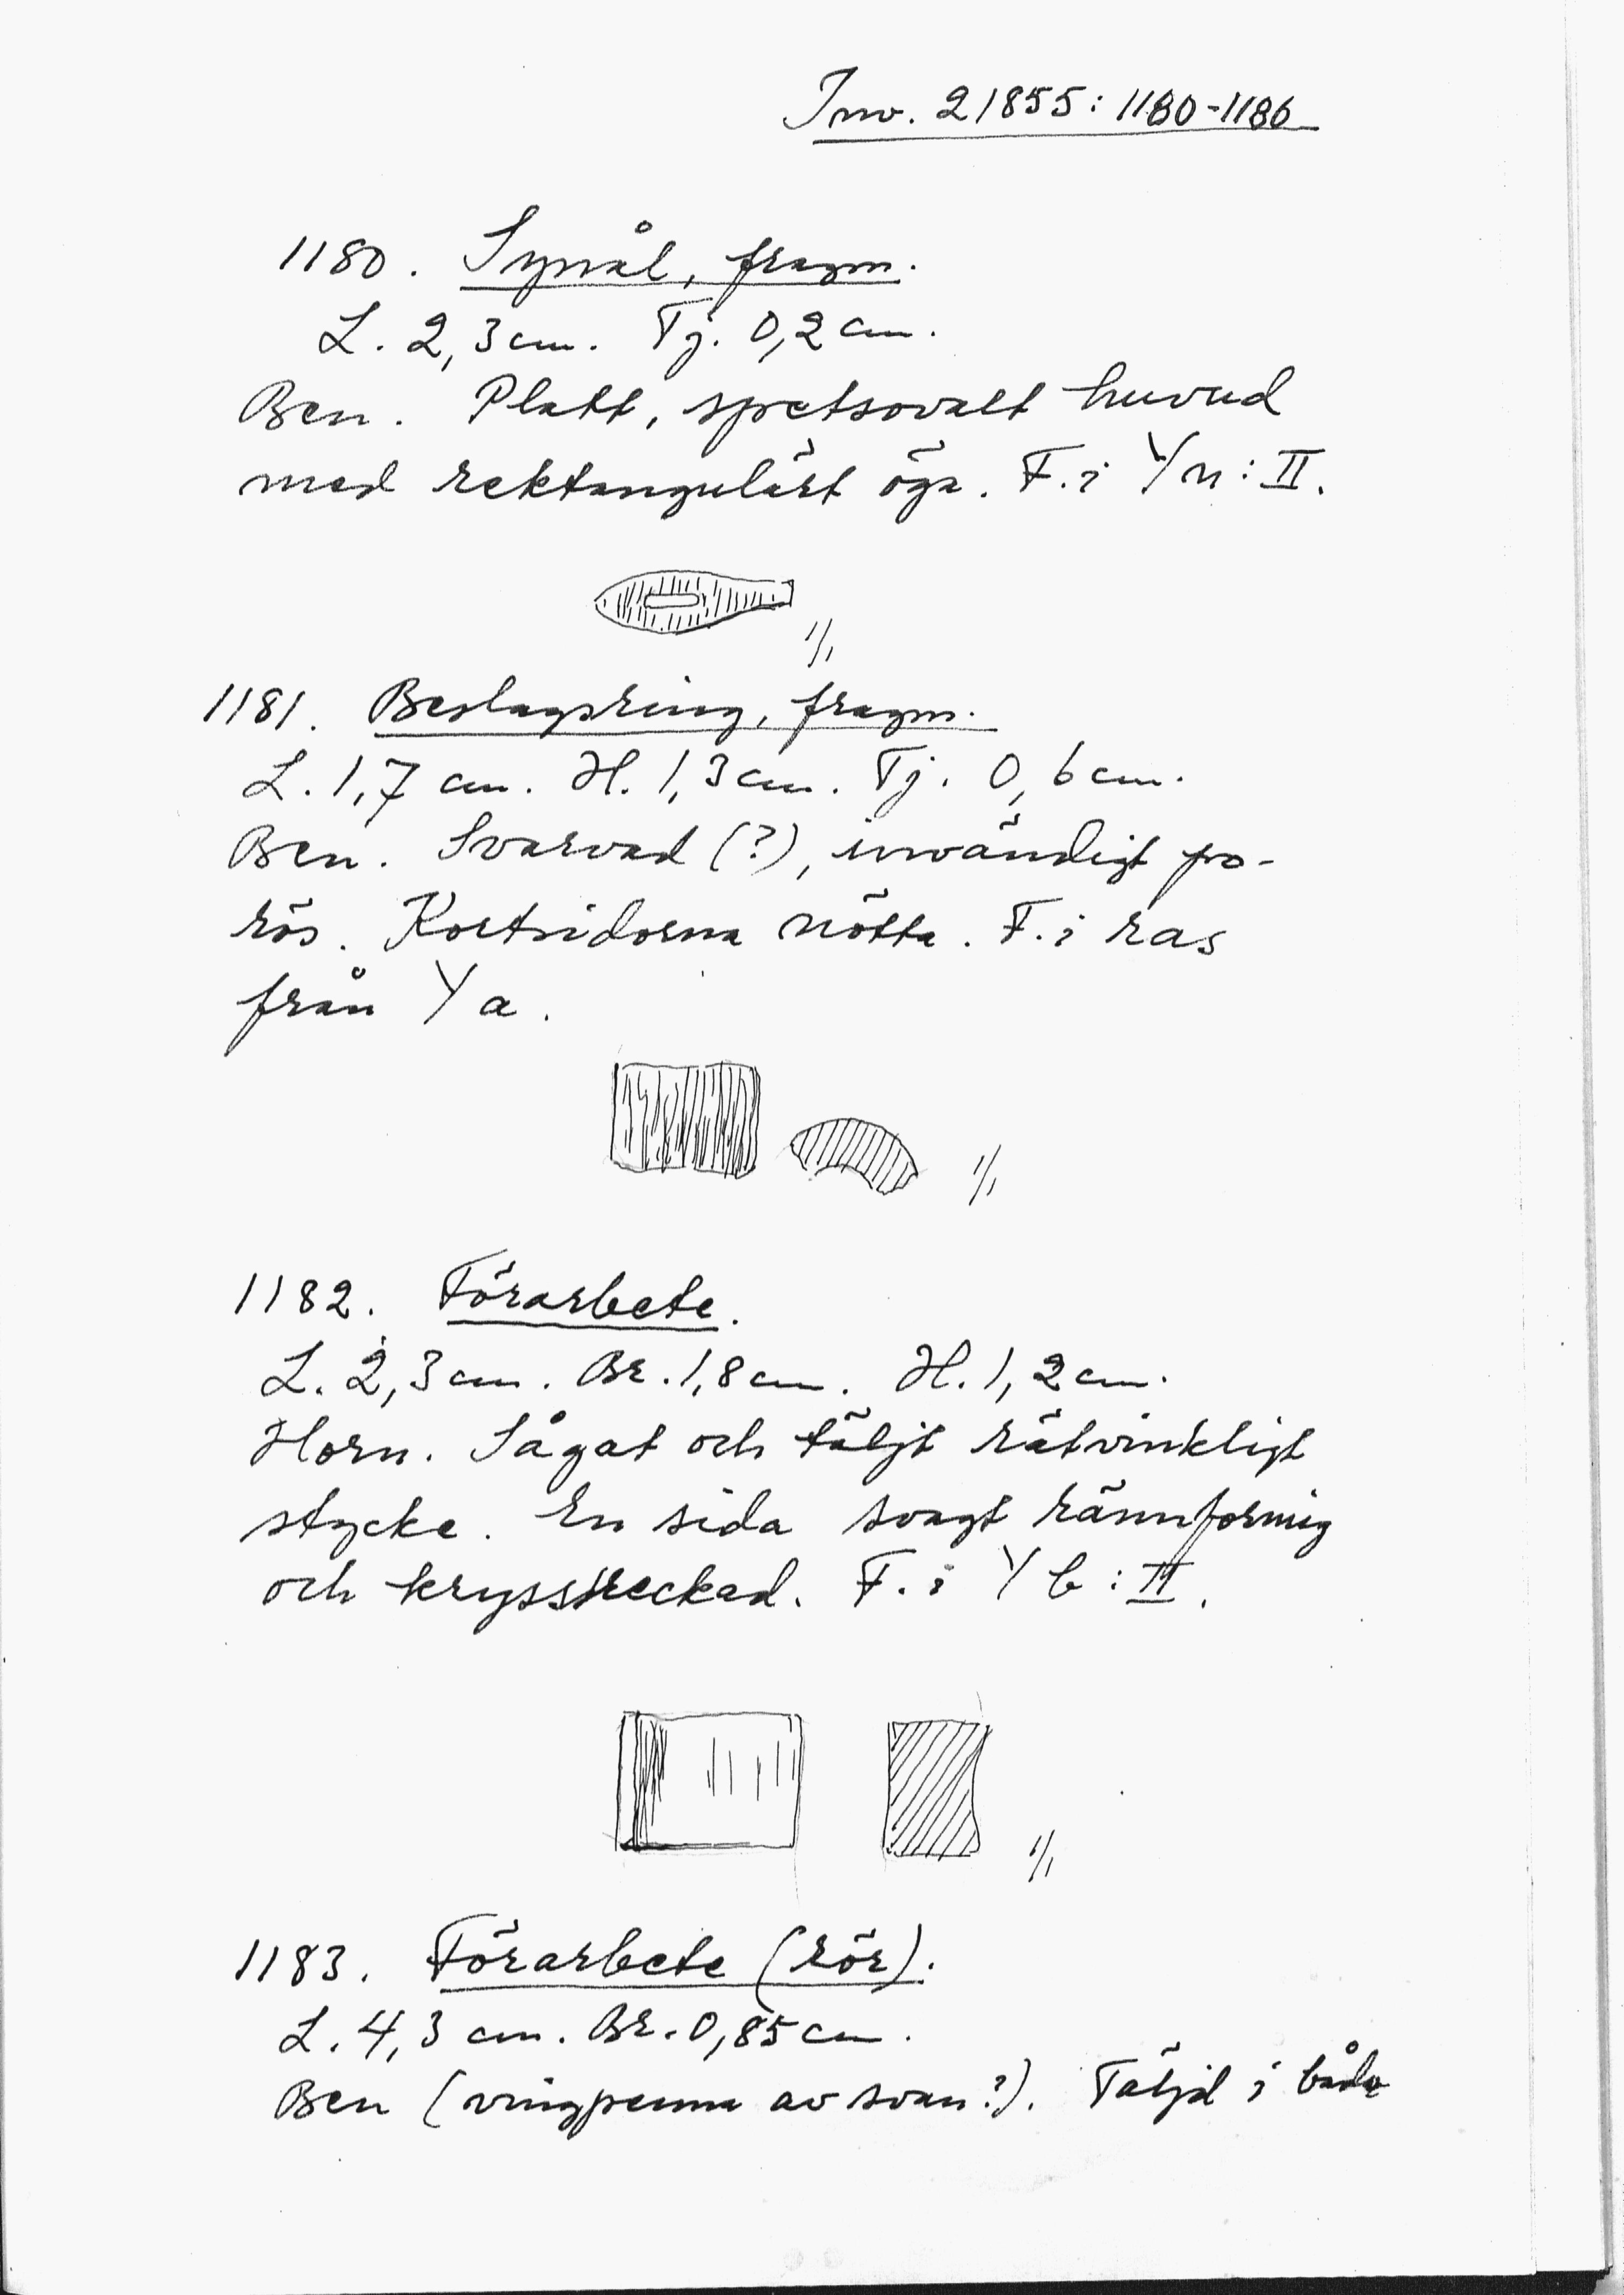 Inv. 21855: 1180-1186
1180. Synål, fragm.
L. 2,3 cm. Tj. 0,2 cm.
Ben. Platt, spetsovalt huvud
med rektangulärt öga. F. i Yn: II.
1/1
1181. Beslagsring, fragm.
L. 1,7 cm. H. 1,3 cm. Tj. 0,6 cm.
Ben. Svarvad (?), invändigt po-
rös. Kortsidorna nötta. F. i ras
från Y a.
1/1
1182. Förarbete.
L. 2,3 cm. Br. 1,8 cm. H. 1,2 cm.
Horn. Sågat och täljt rätvinkligt
stycke. En sida svagt rännformig
och krysstreckad. F. i Y b: II.
1/1
1183. Förarbete (rör).
L. 4,3 cm. Br. 0,85 cm.
Ben (vingpenna av svan?). Täljd i båda